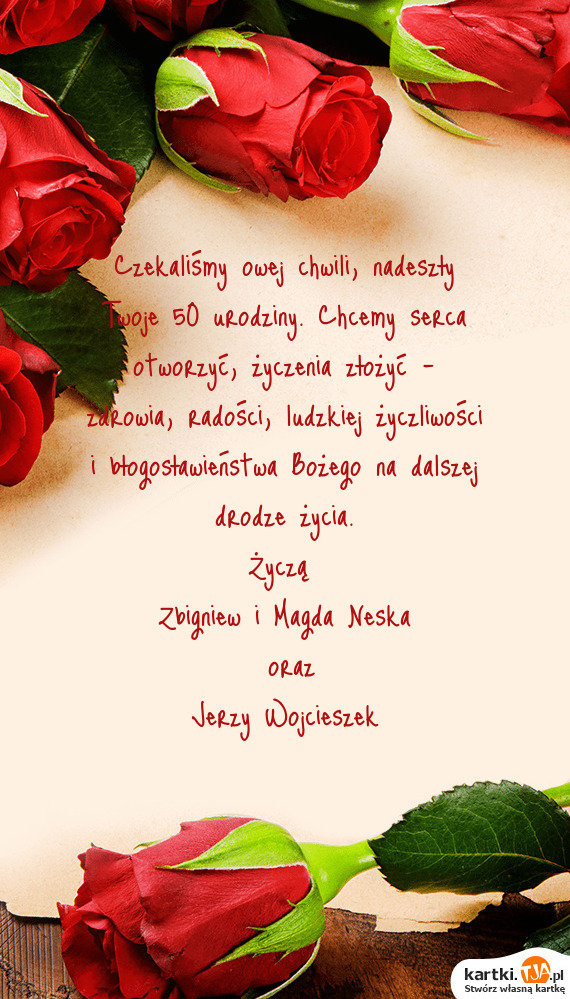 Czekaliśmy owej chwili, nadeszły
Twoje 50 urodziny. Chcemy serca
otworzyć, życzenia złożyć -
zdrowia, radości, ludzkiej życzliwości
i błogosławieństwa Bożego na dalszej
drodze życia.
Życzą
Zbigniew i Magda Neska
oraz
Jerzy Wojcieszek
kartki.TJA.pl
Stwórz własną kartkę